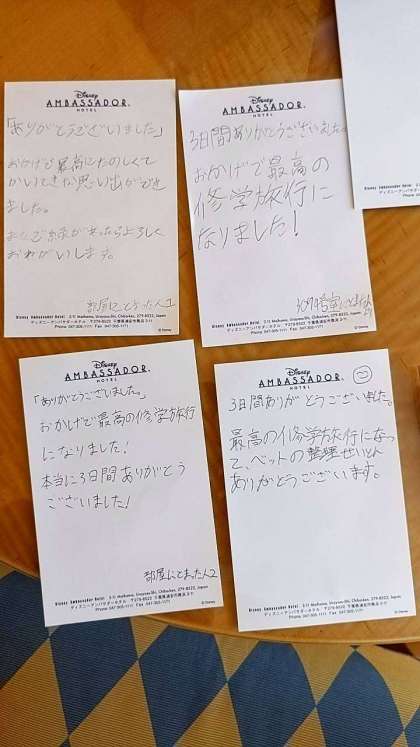 Disney
AMBASSADOR®
HOTEL
「ありがとうございました」
おかげで最高にたのしくて
かいてきな思い出ができ
ました。
またご縁があったらよろしく
おねがいします。
部屋にとまった人1
Disney Ambassador Hotel 2-11 Maihama, Urayasu-Shi, Chiba-ken, 279-8522, Japan
ディズニーアンバサダーホテル 〒279-8522 千葉県浦安市舞浜2-11
Phone 047-305-1111 Fax 047-305-1171
© Disney
Disney
AMBASSADOR®
HOTEL
3日間ありがとうございました。
おかげで最高の
修学旅行に
なりました!
Disney Ambassador Hotel 2-11 Maihama, Urayasu-Shi, Chiba-ken, 279-8522, Japan
ディズニーアンバサダーホテル 〒279-8522 千葉県浦安市舞浜2-11
Phone 047-305-1111 Fax 047-305-1171
© Disney
Disney Ambassador Hotel
ディズニー
Disney
AMBASSADOR®
HOTEL
「ありがとうございました。
おかげで最高の修学旅行
になりました!
本当に3日間ありがとう
ございました!
部屋にとまった人2
Disney Ambassador Hotel 2-11 Maihama, Urayasu-Shi, Chiba-ken, 279-8522, Japan
ディズニーアンバサダーホテル 〒279-8522 千葉県浦安市舞浜2-11
Phone 047-305-1111 Fax 047-305-1171
© Disney
Disney
AMBASSADOR®
HOTEL
3日間ありがとうございました。
最高の修学旅行になっ
て、ベットの整理せいとん
ありがとうございます。
Disney Ambassador Hotel 2-11 Maihama, Urayasu-Shi, Chiba-ken, 279-8522, Japan
ディズニーアンバサダーホテル 〒279-8522 千葉県浦安市舞浜2-11
Phone 047-305-1111 Fax 047-305-1171
© Disney